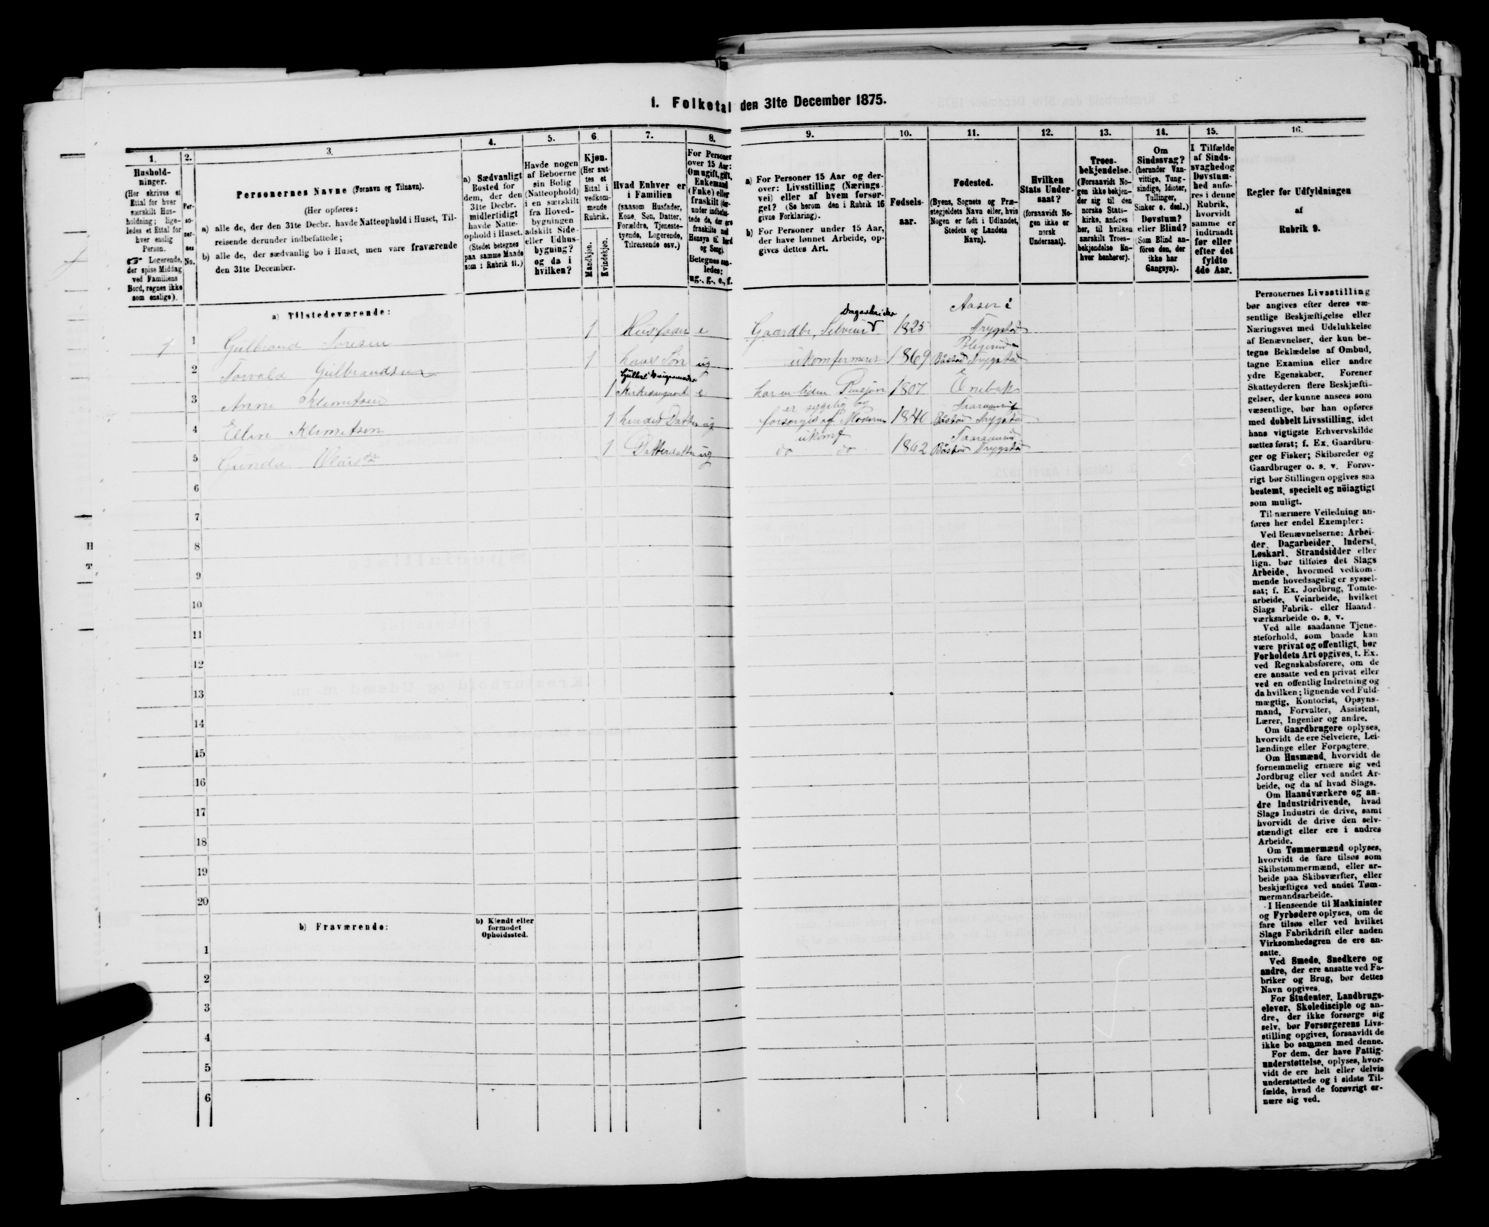 I. Folketal den 31te December 1875.
1.
Hushold-
ninger.
(Her skrives et
Ettal for hver
særskilt Hus-
holdning; lige-
ledes et Ettal for
hver enslig
Person.
Logerende,
der spise Middag
ved Familiens
Bord, regnes ikke
som enslige).
2.
Per-
so-
ner-
nes
No.
3.
Personernes Navne (Fornavn og Tilnavn).
(Her opføres:
a) alle de, der den 31te Decbr. havde Natteophold i Huset, Til-
reisende derunder indbefattede;
b) alle de, der sædvanlig bo i Huset, men vare fraværende
den 31te December.
4.
a) Sædvanligt
Bosted for
dem, der den
31te Decbr.
midlertidigt
havde Natte-
ophold i Huset.
(Stedet betegnes
paa samme Maade
som i Rubrik 11.)
5.
Havde nogen
af Beboerne
sin Bolig
(Natteophold)
i en særskilt
fra Hoved-
bygningen
adskilt Side-
eller Udhus-
bygning?
og da i
hvilken?
6.
Kjøn.
(Her sæt-
tes et
Ettal i
vedkom-
mende
Rubrik.
Mandkjøn.
Kvindekjøn.
7.
Hvad Enhver er
i Familien
(saasom Husfader,
Kone, Søn, Datter,
Forældre, Tjeneste-
tyende, Logerende,
Tilreisende osv.)
8.
For Personer
over 15 Aar:
Om ugift, gift,
Enkemand
(Enke) eller
fraskilt
Betegnes saa-
ledes:
ug., g., e., f.
9.
a) For Personer 15 Aar og der-
over: Livsstilling (Nærings-
vei) eller af hvem forsør-
get? (Se herom den i Rubrik 16
givne Forklaring).
b) For Personer under 15 Aar,
der have lønnet Arbeide, op-
gives dettes Art.
10.
Fødsels-
aar.
11.
Fødested.
(Byens, Sognets og Præ-
stegjeldets Navn eller, hvis
Nogen er født i Udlandet,
Stedets og Landets
Navn).
12.
Hvilken
Stats Under-
saat?
(forsaavidt No-
gen ikke er
norsk
Undersaat).
13.
Troes-
bekjendelse.
(Forsaavidt No-
gen ikke bekjen-
der sig til den
norske Stats-
kirke, anføres
her, til hvilken
særskilt Troes-
bekjendelse En-
hver henhører).
14.
Om
Sindssvag?
(herunder Van-
vittige, Tung-
sindige, Idioter,
Tullinger,
Sinker o. desl.)
Døvstum?
eller Blind?
(Som Blind an-
føres den, der
ikke har
Gangsyn).
15.
I Tilfælde
af Sinds-
svaghed og
Døvstum-
hed anfø-
res i denne
Rubrik,
hvorvidt
samme er
indtraadt
før eller
efter det
fyldte
4de Aar.
16.
Regler for Udfyldningen
af
Rubrik 9.
a) Tilstedeværende:
1 1 Gulbrand Toresen 1 Husfader e Gaardbr. Selveier Dagarbeider 1825 Aaser i Trygstad
2 Torvald Gulbrandsen 1 hans Søn ug ukonfirmeret 1869 Båstad Trygstad
3 Anne Klemetsen 1 e har en liden Pension 1807 Enebak
4 Elin Klemetsen 1 hendes Datter ug er sygelig og forsørges af Moderen 1840 Båstad Trygstad
5 Gunda 1 Datterdatter ug ukonf do do 1862 Båstad Trygstad
6
7
8
9
10
11
12
13
14
15
16
17
18
19
20
b) Fraværende:
b) Kjendt eller
formodet
Opholdssted.
1
2
3
4
5
6
Personernes Livsstilling
bør angives efter deres væ-
sentlige Beskjæftigelse eller
Næringsvei med Udelukkelse
af Benævnelser, der kun be-
tegne Beklædelse af Ombud,
tagne Examina eller andre
ydre Egenskaber. Forener
Skatteyderen flere Beskjæfti-
gelser, der kunne ansees som
væsentlige, bør han opføres
med dobbelt Livsstilling, idet
hans vigtigste Erhvervskilde
sættes først; f. Ex. Gaardbru-
ger og Fisker; Skibsreder og
Gaardbruger o. s. v. Forøv-
rigt bør Stillingen opgives saa
bestemt, specielt og nöiagtigt
som muligt.
Til nærmere Veiledning an-
føres her endel Exempler:
Ved Benævnelserne: Arbei-
der, Dagarbeider, Inderst,
Løskarl, Strandsidder eller
lign. bør tilføies det Slags
Arbeide, hvormed vedkom-
mende hovedsagelig er syssel-
sat; f. Ex. Jordbrug, Tomte-
arbeide, Veiarbeide, hvilket
Slags Fabrik- eller Haand-
værksarbeide o. s. v.
Ved alle saadanne Tjene-
steforhold, som baade kan
være privat og offentligt, bør
Forholdets Art opgives, t. Ex.
ved Regnskabsførere, om de
ere ansatte ved en privat eller
ved en offentlig Indretning og
da hvilken; lignende ved Fuld-
mægtig, Kontorist, Opsyns-
mand, Forvalter, Assistent,
Lærer, Ingeniør og andre.
Om Gaardbrugere oplyses,
hvorvidt de ere Selveiere, Lei-
lændinge eller Forpagtere.
Om Husmænd, hvorvidt de
fornemmelig ernære sig ved
Jordbrug eller ved andet Ar-
beide, og da af hvad Slags.
Om Haandværkere og an-
dre Industridrivende, hvad
Slags Industri de drive, samt
hvorvidt de drive den selv-
stændigt eller ere i andres
Arbeide.
Om Tømmermænd oplyses,
hvorvidt de fare tilsøs som
Skibstømmermænd, eller ar-
beide paa Skibsværfter, eller
beskjæftiges ved andet Tøm-
mermandsarbeide.
I Henseende til Maskinister
og Fyrbødere oplyses, om de
fare tilsøs eller ved hvilket
Slags Fabrikdrift eller anden
Virksomhedsgren de ere an-
satte.
Ved Smede, Snedkere og
andre, der ere ansatte ved Fa-
briker og Brug, bør dettes
Navn opgives.
For Studenter, Landbrugs-
elever, Skoledisciple og an-
dre, der ikke forsørge sig
selv, bør Forsørgerens Livs-
stilling opgives, forsaavidt de
ikke bo sammen med denne.
For dem, der have Fattig-
understøttelse, oplyses, hvor-
vidt de ere helt eller delvis
understøttede og i sidste Til-
fælde, hvad de forøvrigt er-
nære sig ved.